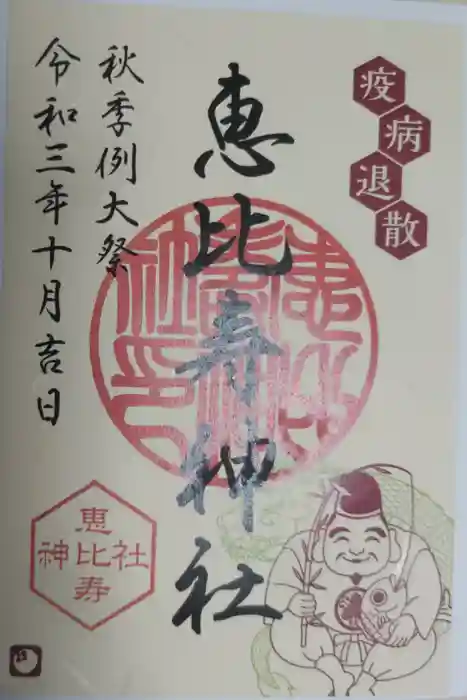 疫病退散
恵比寿神社
秋季例大祭
令和三年十月吉日
恵比寿
神社